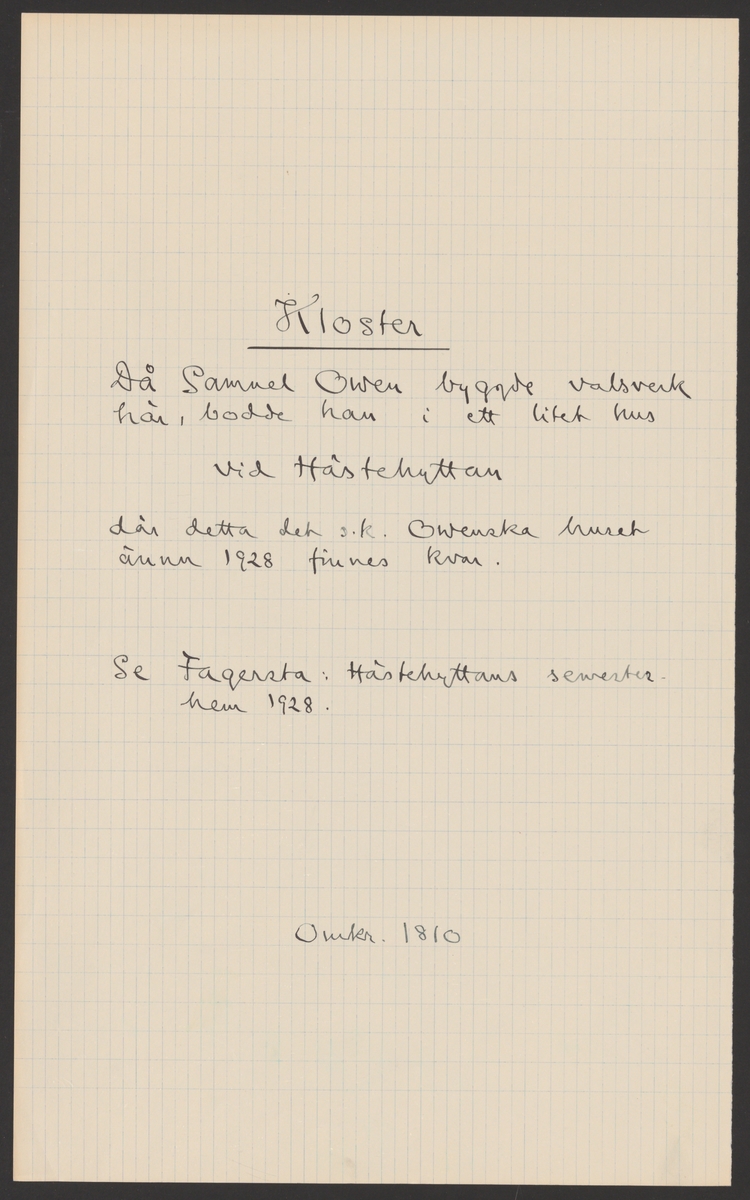 Kloster
Då Samuel Owen byggde valsverk
här, bodde han i ett litet hus
vid Hästehyttan
där detta det s.k. Owenska huset
ännu 1928 finnes kvar.
Se Fagersta: Hästehyttans semester-
hem 1928.
Omkr. 1810